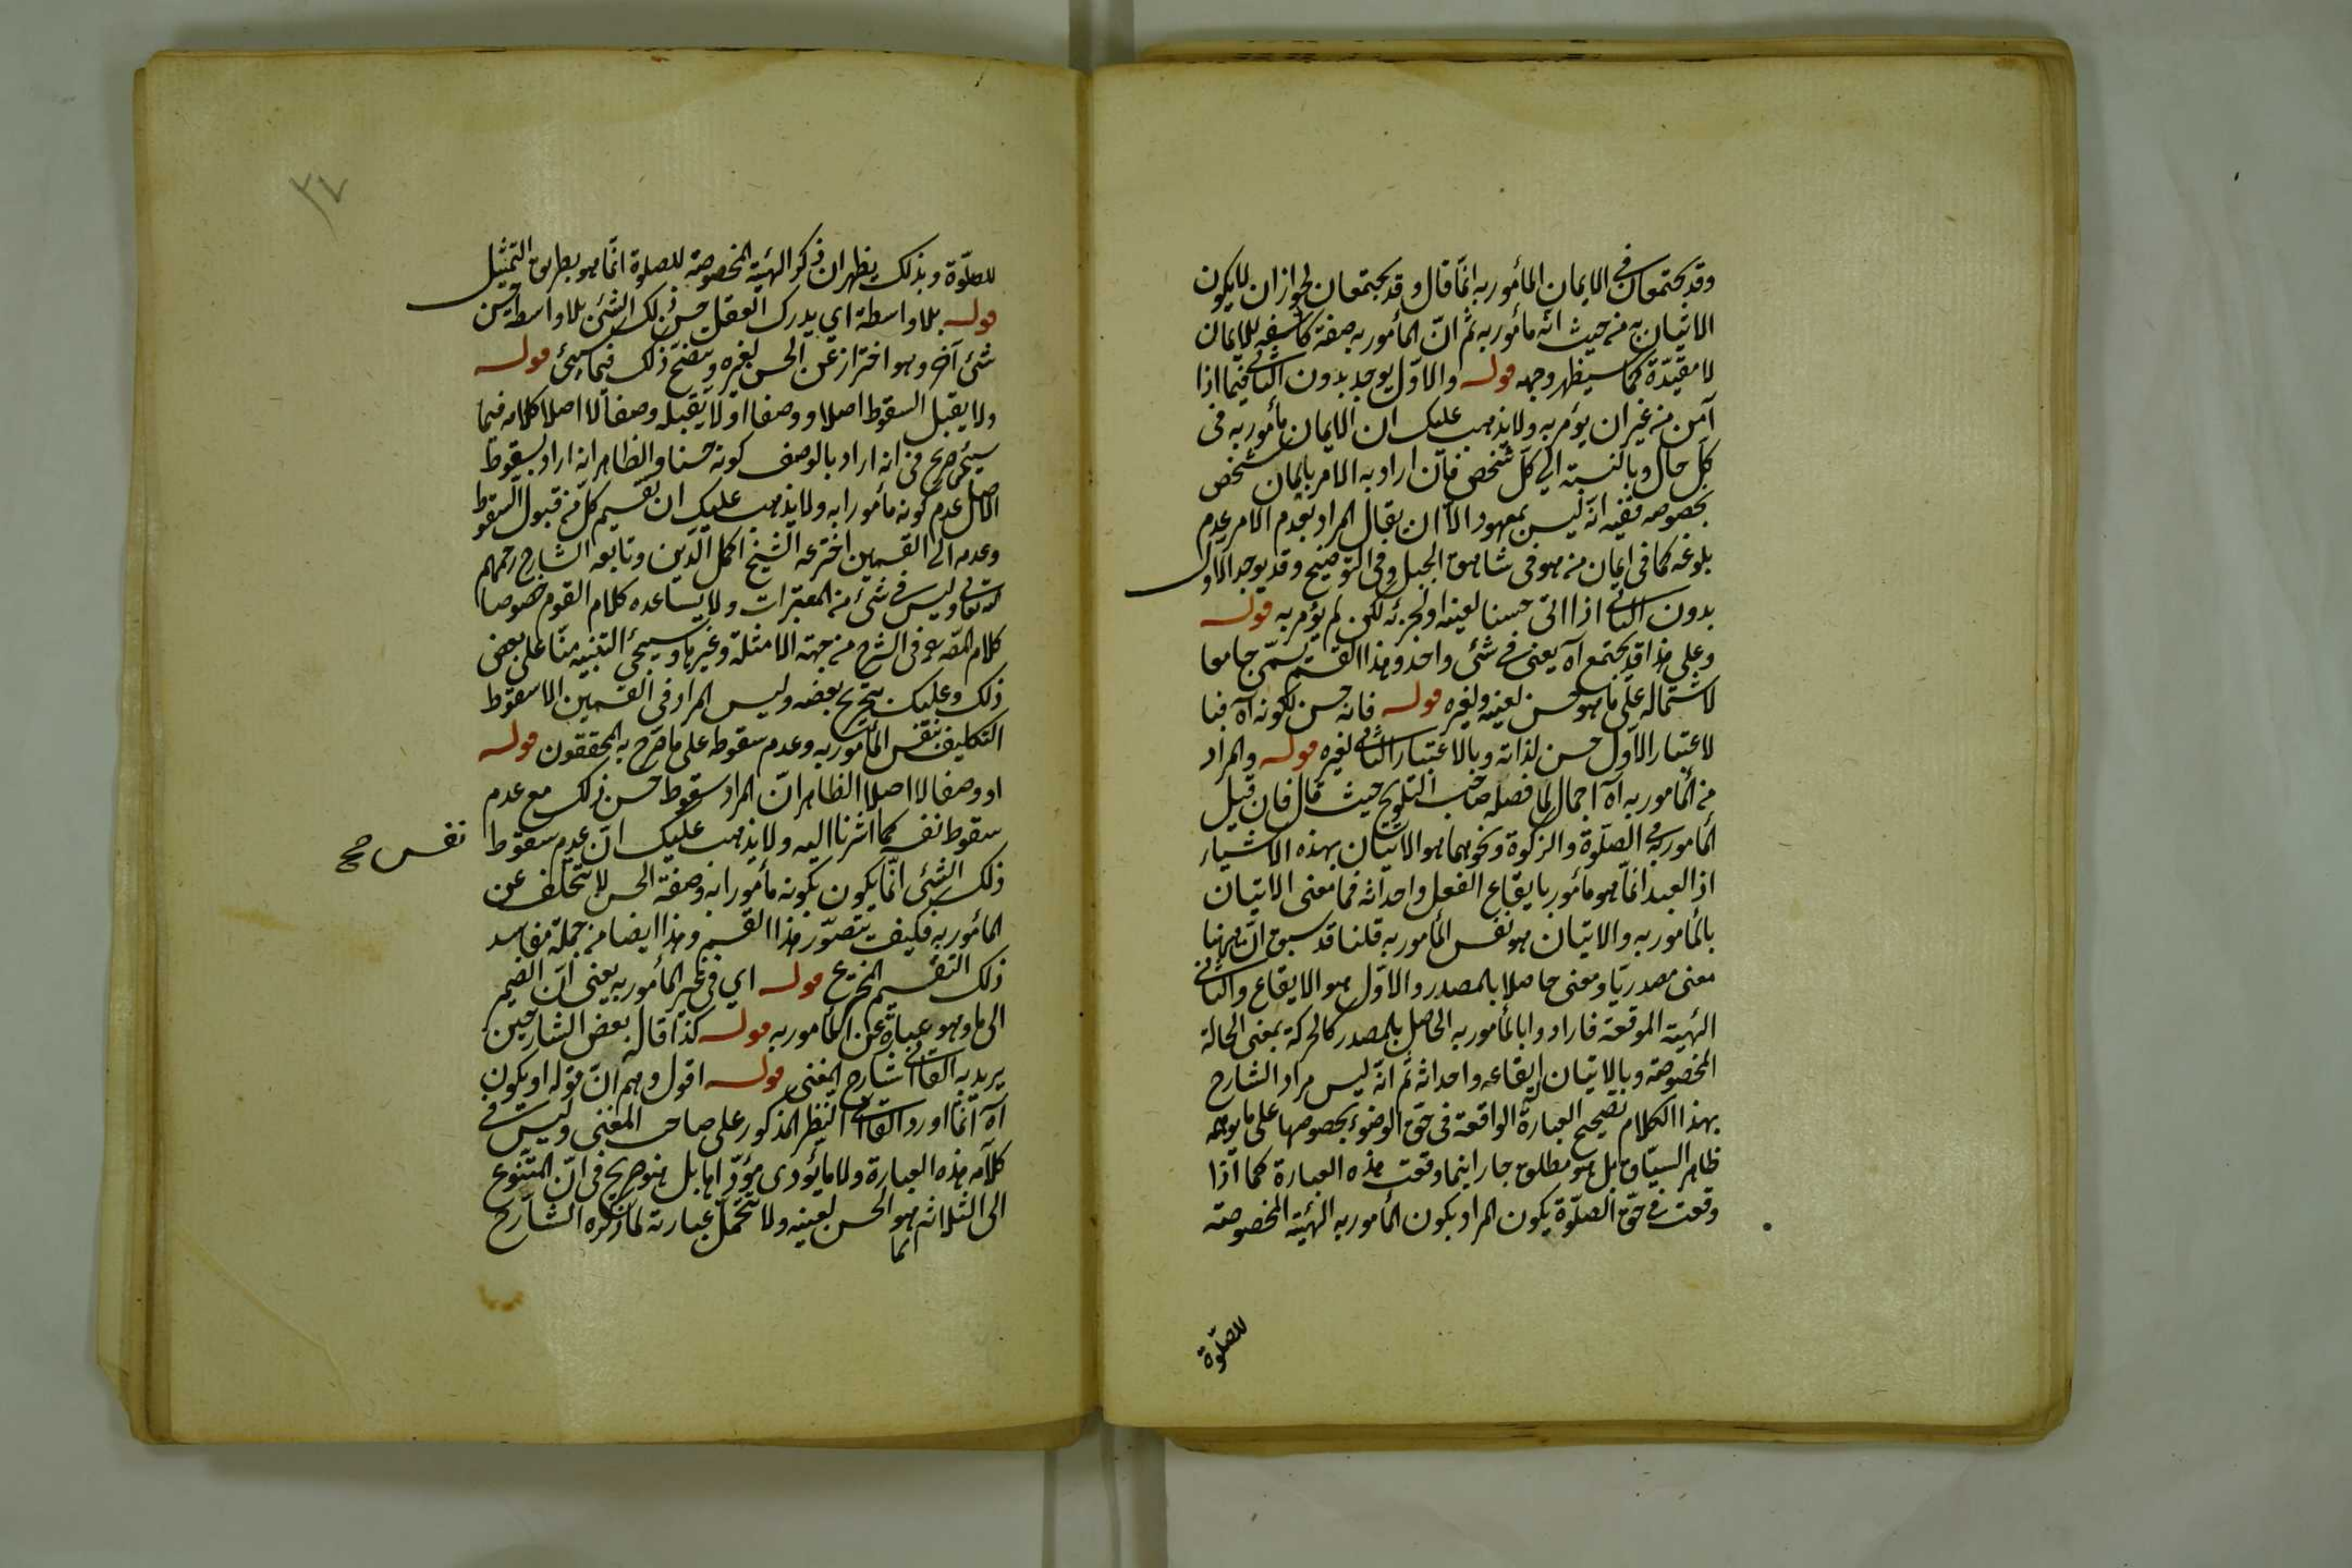 وقد يجتمعان في الايمان المأمور به انما قال وقد يجتمعان لجواز ان لا يكون
الاتيان به من حيث انه مأمور به ثم ان المأمور به صفة كاشفة للايمان
لا مقيدة كما سيظهر وجهه قوله والاول يوجد بدون الثاني فيما اذا
آمن من غير ان يؤمر به ولا يذهب عليك ان الايمان مأمور به في
كل حال وبالنسبة الى كل شخص فان اراد به الامر بايمان شخص
بخصوصه ففيه انه ليس بمعهود الا ان يقال المراد بعدم الامر عدم
بلوغه كما في ايمان من هو في شاهق الجبل وفي التوضيح وقد يوجد الاول
بدون الثاني اذا اتى حسنا لعينه او لجزئه لكن لم يؤمر به قوله
وعلى هذا قد يجتمع آه يعني في شئ واحد وهذا القسم يسمى جامعا
لاشتماله على ما هو حسن لعينه ولغيره قوله فانه حسن لكونه آه فبا
لاعتبار الاول حسن لذاته وبالاعتبار الثاني لغيره قوله والمراد
من المأمور به آه اجمال لما فصله صاحب التلويح حيث قال فان قيل
المأمور به في الصلوة والزكوة ونحوهما هو الاتيان بهذه الاشياء
اذ العبد انما هو مأمور بايقاع الفعل واحداثه فما معنى الاتيان
بالمأمور به والاتيان هو نفس المأمور به قلنا قد سبق ان ههنا
معنى مصدريا ومعنى حاصلا بالمصدر والاول هو الايقاع والثاني
الهيئة الموقعة فارادوا بالمأمور به الحاصل بالمصدر كالحركة بمعنى الحالة
المخصوصة وبالاتيان ايقاعه واحداثه ثم انه ليس مراد الشارح
بهذا الكلام تصحيح العبارة الواقعة في حق الوضوء بخصوصها على ما يوهمه
ظاهر السياق بل هو مطلق جار اينما وقعت هذه العبارة كما اذا
وقعت في حق الصلوة يكون المراد بكون المأمور به الهيئة المخصوصة
للصلوة
٣٧
للصلوة وبذلك يظهر ان ذكر الهيئة المخصوصة للصلوة انما هو بطريق التمثيل
قوله بلا واسطة اي يدرك العقل حسن ذلك الشئ بلا واسطة حسن
شئ آخر وهو احتراز عن الحسن لغيره ويتضح ذلك فيما سيجئ قوله
ولا يقبل السقوط اصلا ووصفا او لا يقبله وصفا لا اصلا كلامه فيما
سيجئ صريح في انه اراد بالوصف كونه حسنا والظاهر انه اراد بسقوط
الاصل عدم كونه مأمورا به ولا يذهب عليك ان تقسيم كل من قبول السقوط
وعدمه الى القسمين اخترعه الشيخ اكمل الدين وتابعه الشارح رحمهم
الله تعالى وليس في شئ من المعتبرات ولا يساعده كلام القوم خصوصا
كلام المص في الشرح من جهة الامثلة وغيرها وسيجئ التنبيه منا على بعض
ذلك وعليك بتخريج بعضه وليس المراد في القسمين الا سقوط
التكليف بنفس المأمور به وعدم سقوطه على ما صرح به المحققون قوله
او وصفا لا اصلا الظاهر ان المراد سقوط حسن ذلك مع عدم
سقوط نفسه كما اشرنا اليه ولا يذهب عليك ان عدم سقوط
نفس صح
ذلك الشئ انما يكون بكونه مأمورا به وصفة الحسن لا تتخلف عن
المأمور به فكيف يتصور هذا القسم وهذا ايضا من جملة مفاسد
ذلك التقسيم المخترع قوله اي في غير المأمور به يعني ان الضمير
الى ما وهو عبارة عن المأمور به قوله كذا قال بعض الشارحين
يريد به القاآني شارح المغني قوله اقول وهم ان قوله او يكون
آه انما اورد القاآني النظر المذكور على صاحب المغني وليس في
كلامه هذه العبارة ولا ما يؤدي مؤداها بل هو صريح في ان المتنوع
الى الثلاثة انما هو الحسن لعينه ولا تتحمل عبارته لما ذكره الشارح